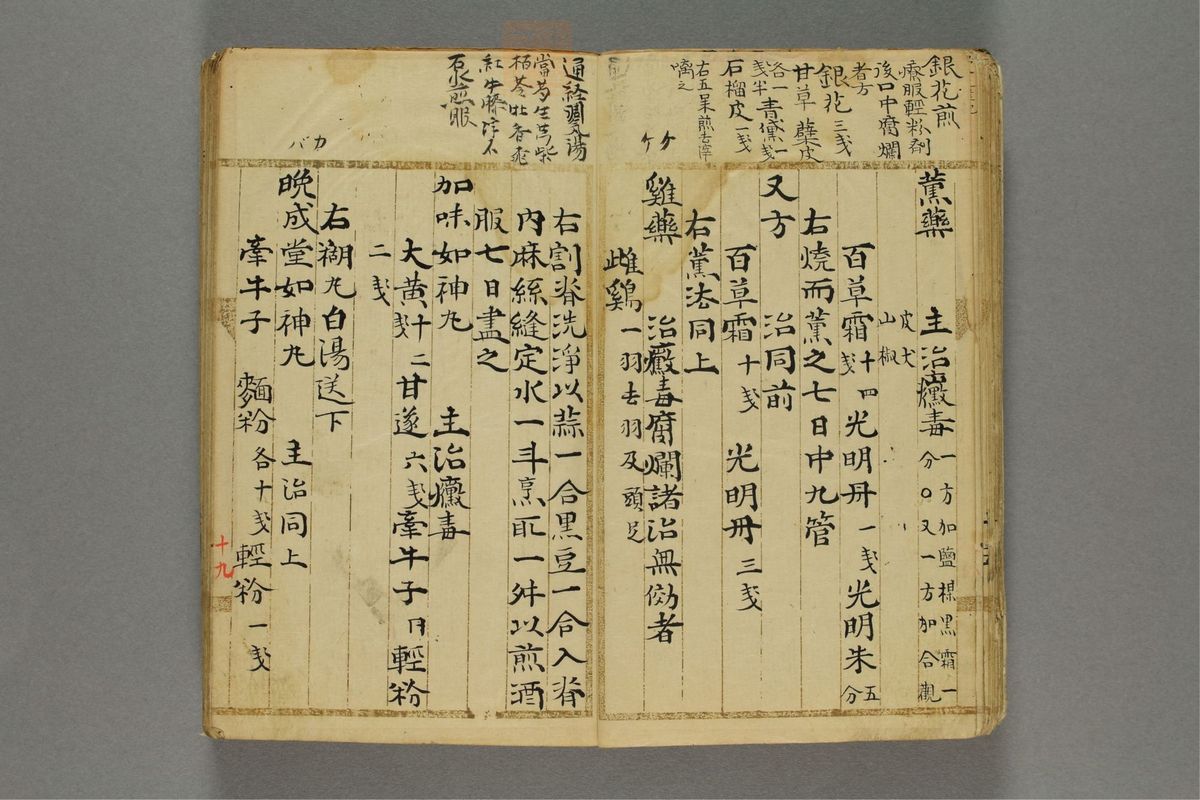 銀花煎
療服輕粉剤
後口中腐爛
者方
銀花三戔
甘草 蘗皮
各一戔半 青黛一戔
石榴皮一戔
右五味煎去滓
嗜之
ケケ
薫藥 主治黴毒 一方加鹽梅黒霜一
分○又一方加合歡
皮犬
山椒
百草霜十四戔 光明丹一戔 光明朱五分
右燒而薫之七日中九管
又方 治同前
百草霜十戔 光明丹三戔
右薫法同上
雞藥 治黴毒腐爛諸治無効者
雌鷄一羽去羽及頭足
通経調氣湯
當
紅牛膝
石水煎服
カバ
右割脊洗淨以蒜一合黒豆一合入脊
内麻絲縫定水一斗烹取一舛以煎酒
服七日盡之
加味如神丸 主治黴毒
大黄十二戔 甘遂六戔 牽牛子 輕粉
二戔
右糊丸白湯送下
晩成堂如神丸 主治同上
牽牛子 麵粉各十戔 輕粉一戔
十九